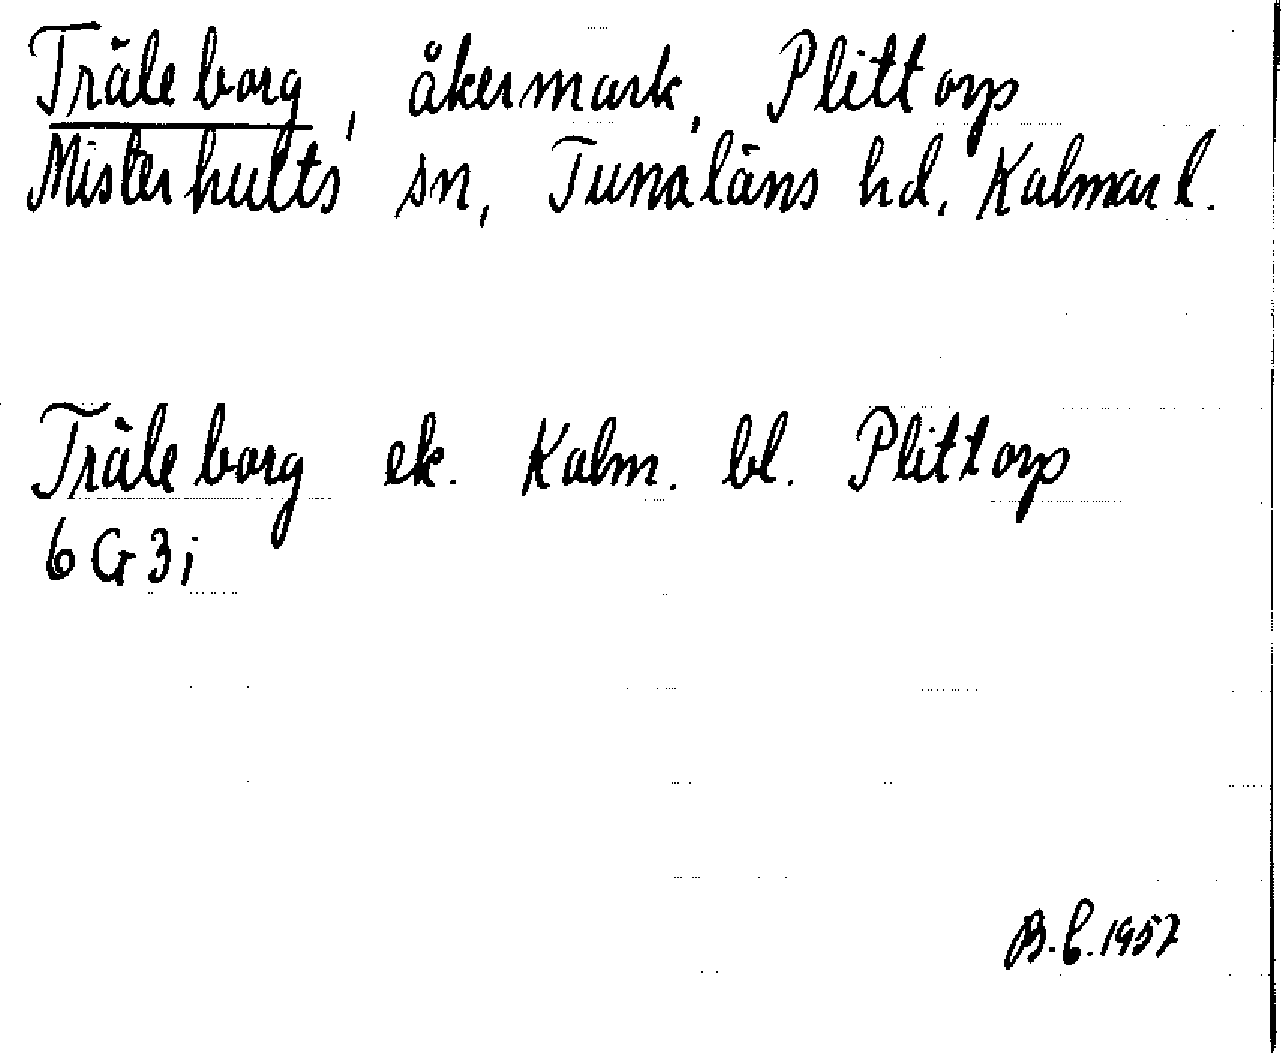 Träleborg, åkermark, Plittorp
Misterhults sn, Tunaläns hd. Kalmar l.
Träleborg ek. Kalm. bl. Plittorp
6 G 3 i
B.C. 1957